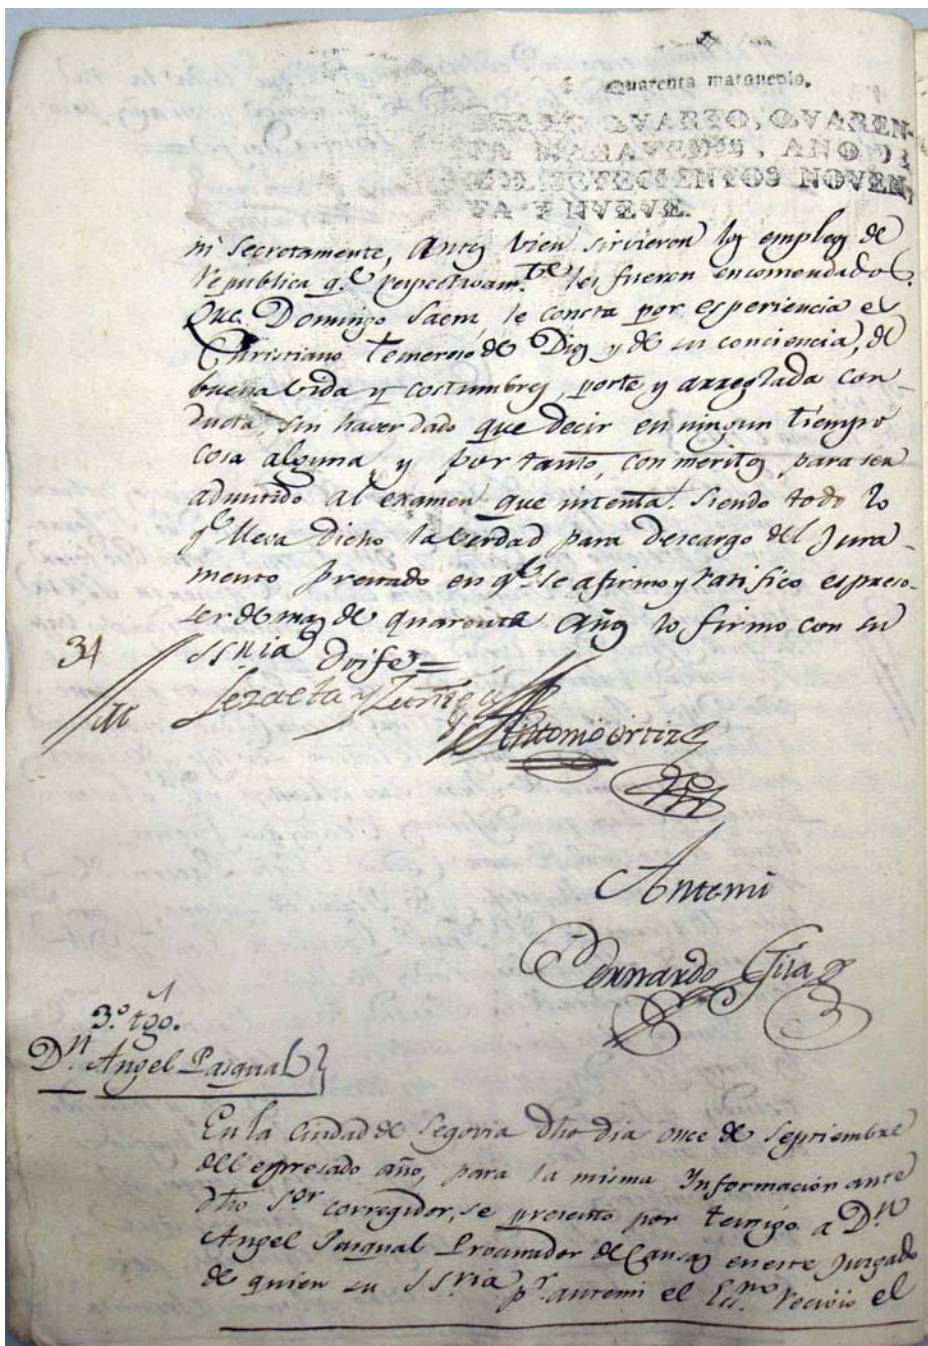 Quarenta maravedis.
SELLO QVARTO, QVAREN-
TA MARAVEDIS, AÑO DE
MIL SETECIENTOS NOVEN-
TA Y NVEVE.
ni secretamente, antes vien sirvieron los empleos de
Republica q.e respectivam.te les fueron encomendados.
Que Domingo Saenz, le consta por esperiencia es
Christiano temeroso de Dios y de su conciencia, de
buena vida y costumbres, porte y arreglada con-
ducta, sin haver dado que decir en ningun tiempo
cosa alguna, y por tanto, con meritos para ser
admitido al examen que intenta. Siendo todo lo
q.e lleva dicho la verdad para descargo del Jura-
mento prestado en q.e se afirmo y ratifico espreso
ser de mas de quarenta años lo firmo con su
34
SSria Doife=
Lezaeta y Zuñiga
Antonio Ortiz
Antemi
Bernardo Gila
3.o tgo.
D.n Angel Pasqual
En la Ciudad de Segovia dho dia once de Septiembre
del espresado año, para la misma Informacion ante
dho S.or corregidor, se presento por testigo a D.n
Angel Pasqual Procurador de Causas en este Juzgado
de quien su SSria p.r antemi el Ess.no recivio el